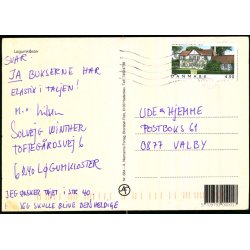 Løgumkloster
SVAR:
JA BUKSERNE HAR
ELASTIK I TALJEN!
M.v. hilsen
SOLVEJG WINTHER
TOFTEGÅRDSVEJ 6
6240 LØGUMKLOSTER
JEG ØNSKER TØJET I STR 40.
JEG SKULLE BLIVE DEN HELDIGE
DANMARK
4.00
UDE & HJEMME
POSTBOKS 61
0877 VALBY